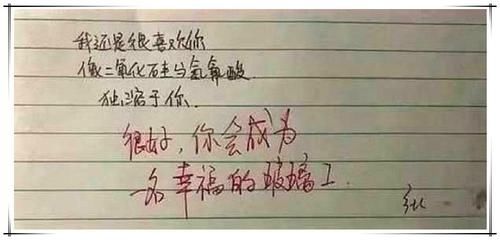 我还是很喜欢你
像二氧化硅与氢氟酸.
独溶于你.
很好,你会成为
一名幸福的玻璃工.